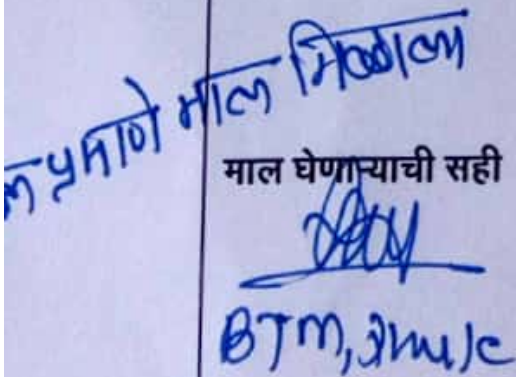 प्रमाणे माल मिळाला
माल घेणाऱ्याची सही
BTM,